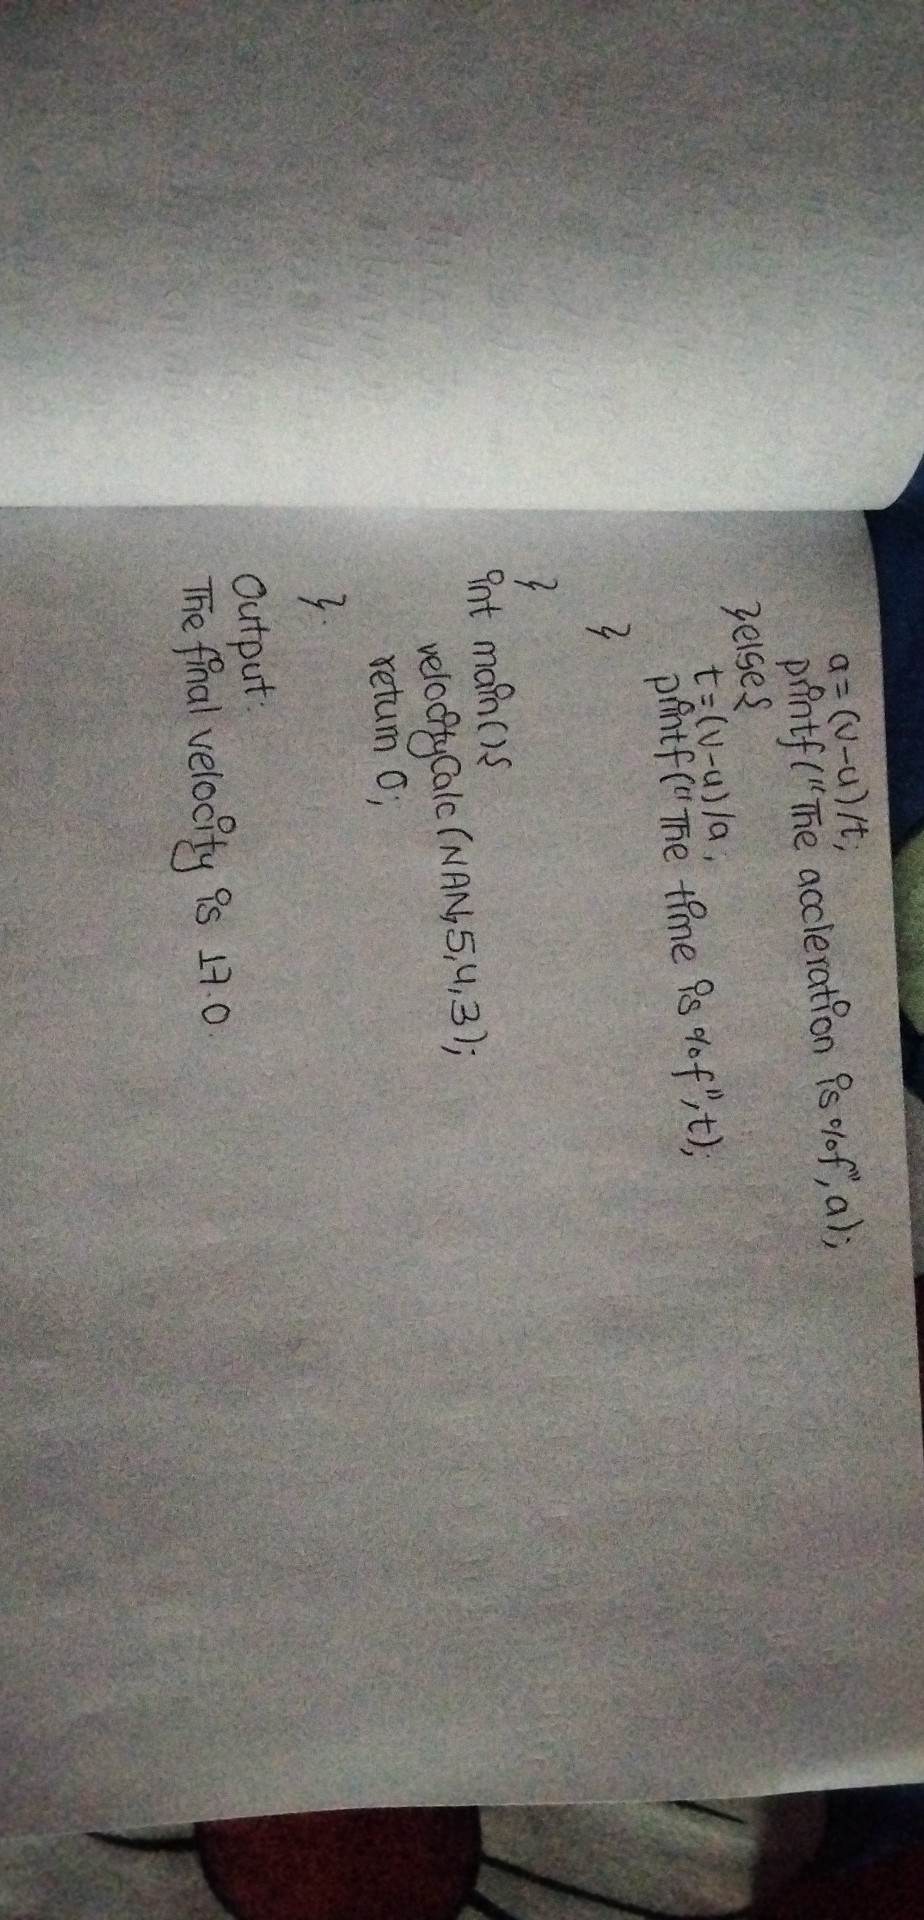 a=(v-u)/t;
printf("The accleration is %f", a);
}else{
t=(v-u)/a;
printf("The time is %f", t);
}
}
int main(){
velocityCalc(NAN,5,4,3);
return 0;
}.
Output:
The final velocity is 17.0.